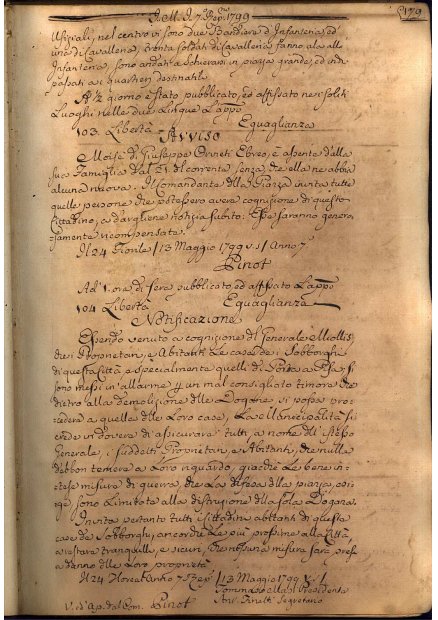 A. M. I. 7. Rep. 1799
179
Uffiziali, nel centro vi sono due Bandiere d'Infanteria, ed
una di Cavalleria, trenta soldati di Cavalleria fanno ala all'
Infanteria, sono andati a schierarsi in piazza grande, ed indi
passati ai quartieri destinatili.
A ½ giorno è stato pubblicato, ed affissato nei soliti
Luoghi nelle due Lingue L'app.
103. Libertà Eguaglianza
Avviso
Moisè di Giuseppe Ebreo, è assente dalla
sua Famiglia dal di corrente senza, che ella ne abbia
alcuna nuova. Il Comandante della Piazza invita tutte
quelle persone che potessero avere cognizione di questo
Cittadino, a dargliene notizia subito. Esse saranno genero-
samente ricompensate.
Il 24 Fiorile / 13 Maggio 1799 v. s / Anno 7
Pinot
Ad 1. ora di sera pubblicato ed affissato L'app.
104 Libertà Eguaglianza
Notificazione
Essendo venuto a cognizione del Generale Miollis,
che i Proprietari, e Abitanti le case dei Sobborghi
di questa Città, e specialmente quelli di Porta a Pisa, si
sono messi in allarme un mal consigliato timore, che
dietro alla demolizione delle Dogane, si possa pro-
cedere a quella delle Loro case, La Municipalità si
crede in dovere di assicurare tutti, a nome dell'istesso
Generale, i suddetti Proprietari, e Abitanti, che nulla
debbon temere a Loro riguardo, giacchè Le bene in-
tese misure di guerra, che La difesa della piazza, esi-
ge, sono Limitate alla distruzione della sola Dogana.
Invita pertanto tutti i Cittadini abitanti di questa
case de Sobborghi, ancorchè Le più prossime alla Città
a restare tranquilli, e sicuri, che nessuna misura sarà presa
a danno delle Loro proprietà
Il 24 Floreal Anno 7 Rep. / 13 Maggio 1799 v. s
Tommaso Presidente
Segretario
V. ed Ap. dal Com. Pinot